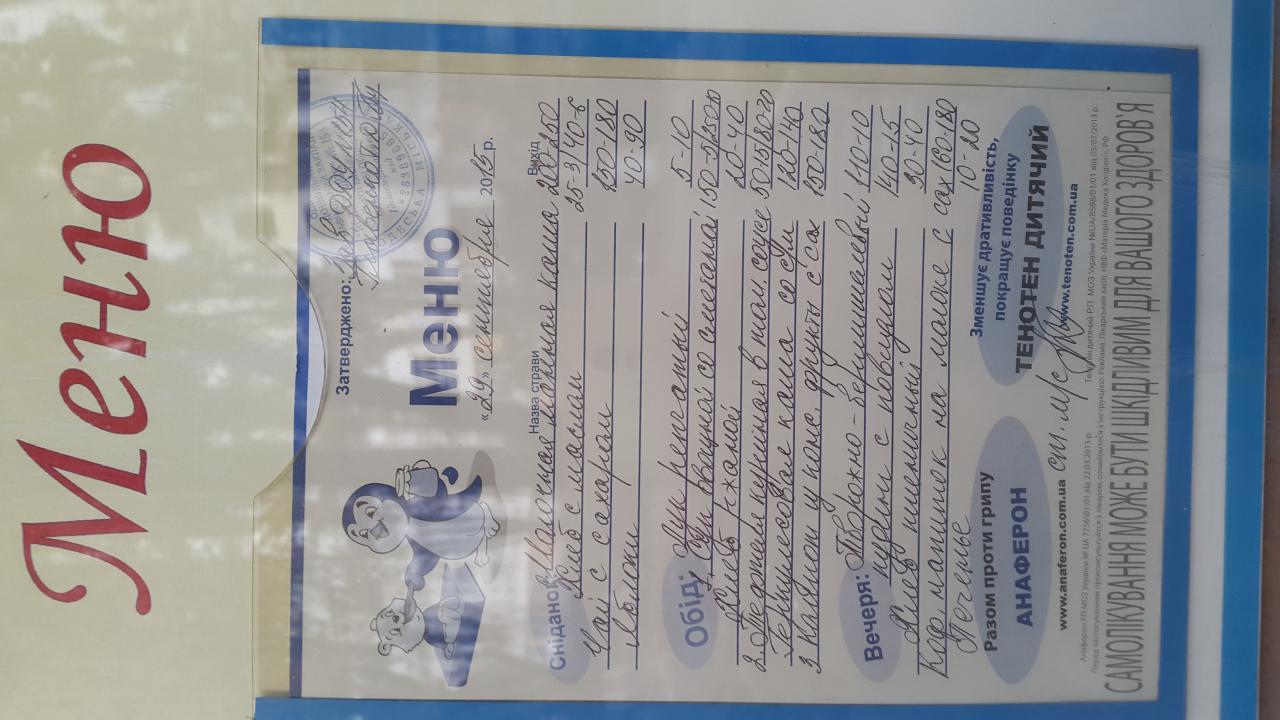 Меню
Затверджено:
Меню
«29» сентября 2015 р.
Назва страви Вихід
Сніданок: Молочная пшенная каша 200-250
Хлеб с маслом 25-3/40-5
Чай с сахаром 150-180
Яблоки 40-90
Обід: 1. Лук репчатый 5-10
Суп овощной со сметаной 150-5/250-10
Хлеб ржаной 20-40
2. куриная в мол. соусе 50
Гречневая каша со сл/м 120-140
3 Кальмош и конс. фрукты с сах 150-180
Вечеря: Творожно-вермишелевый 110-10
пудинг с повидлом 140-15
Хлеб пшеничный 30-40
Коф напиток на молоке с сах 160-180
Печенье 10-20
Разом проти грипу
АНАФЕРОН
www.anaferon.com.ua
Зменшує дратівливість,
покращує поведінку
ТЕНОТЕН ДИТЯЧИЙ
www.tenoten.com.ua
ст. м/с
Анаферон РП МОЗ України № UA 7756\01\01 від 22.03.2013 р. Тенотен дитячий Р.П. МОЗ України №UA/8588/01/01 від 05/07/2013 р.
Перед застосуванням проконсультуйтеся з лікарем, ознайомтеся з інструкцією. Реклама. Лікарський засіб. НВФ «Матеріа Медика Холдинг», РФ
САМОЛІКУВАННЯ МОЖЕ БУТИ ШКІДЛИВИМ ДЛЯ ВАШОГО ЗДОРОВ'Я